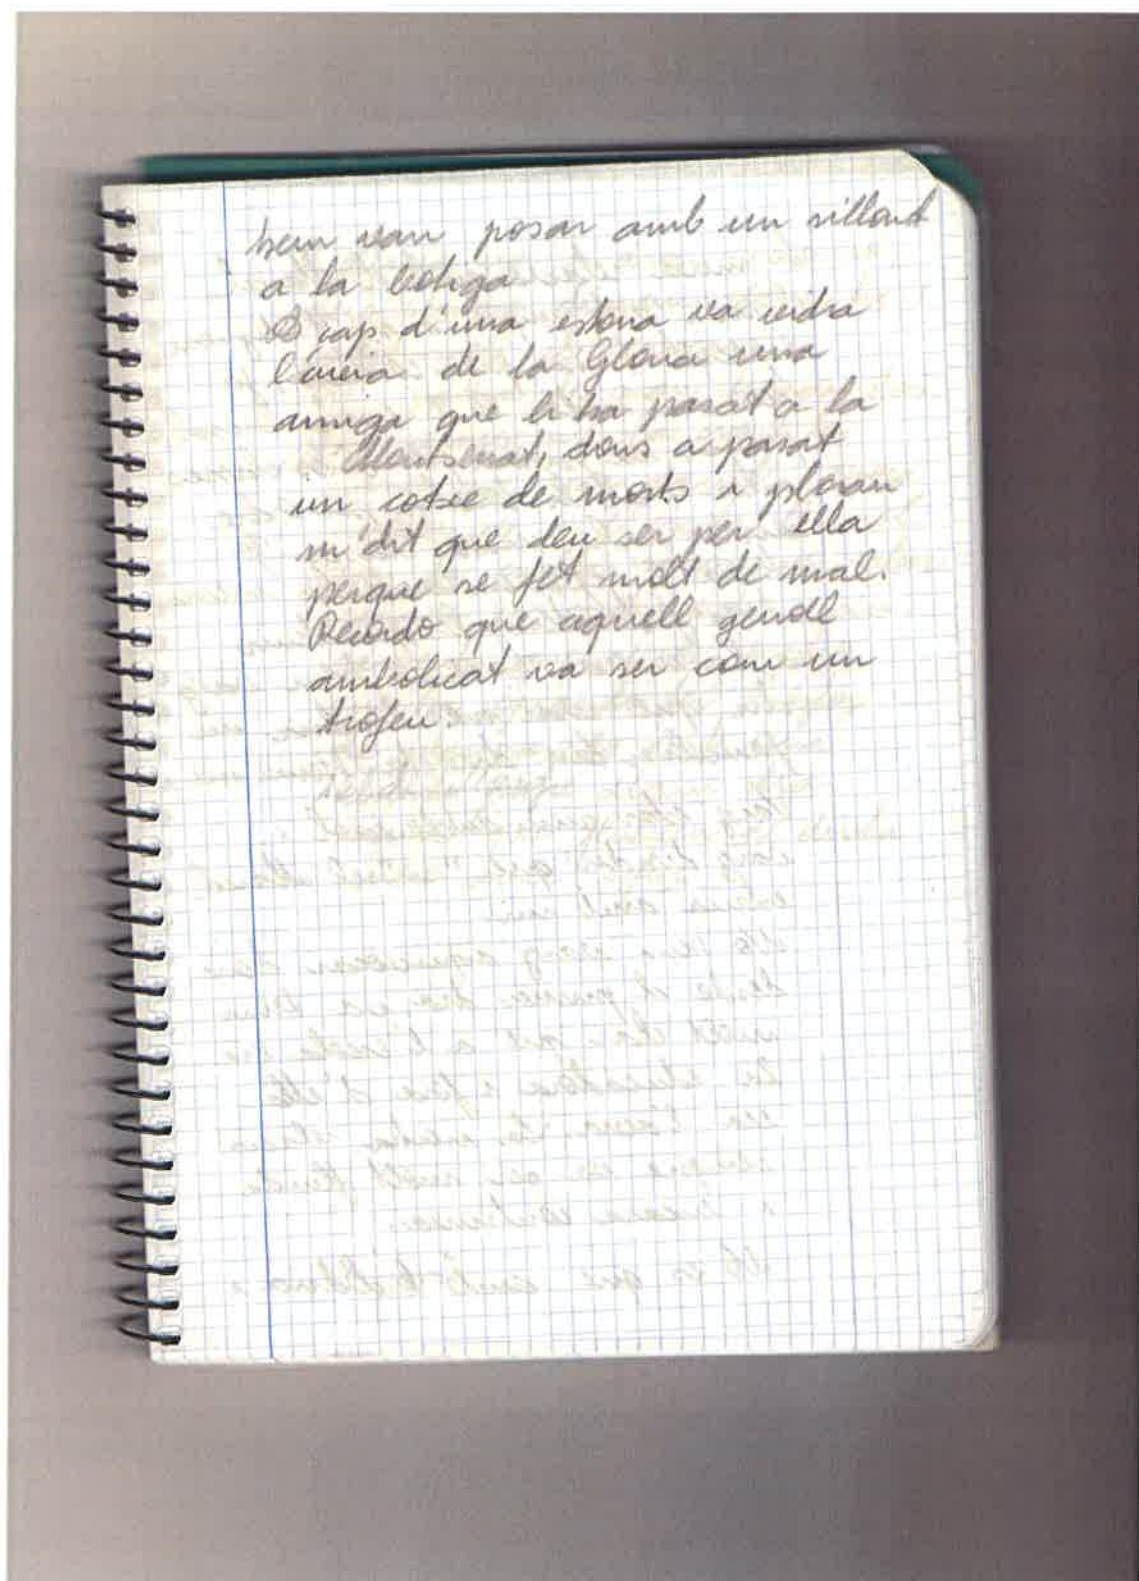 hem van posar amb un sillont
a la botiga
O cap d'una estona va vidra
l'avia de la Gloria una
amiga que li ha pasat a la
Montserrat, dons a pasat
un cotxe de morts i ploran
m'dit que deu ser per ella
perque se fet molt de mal.
Recordo que aquell genoll
ambolicat va ser com un
trofeu.